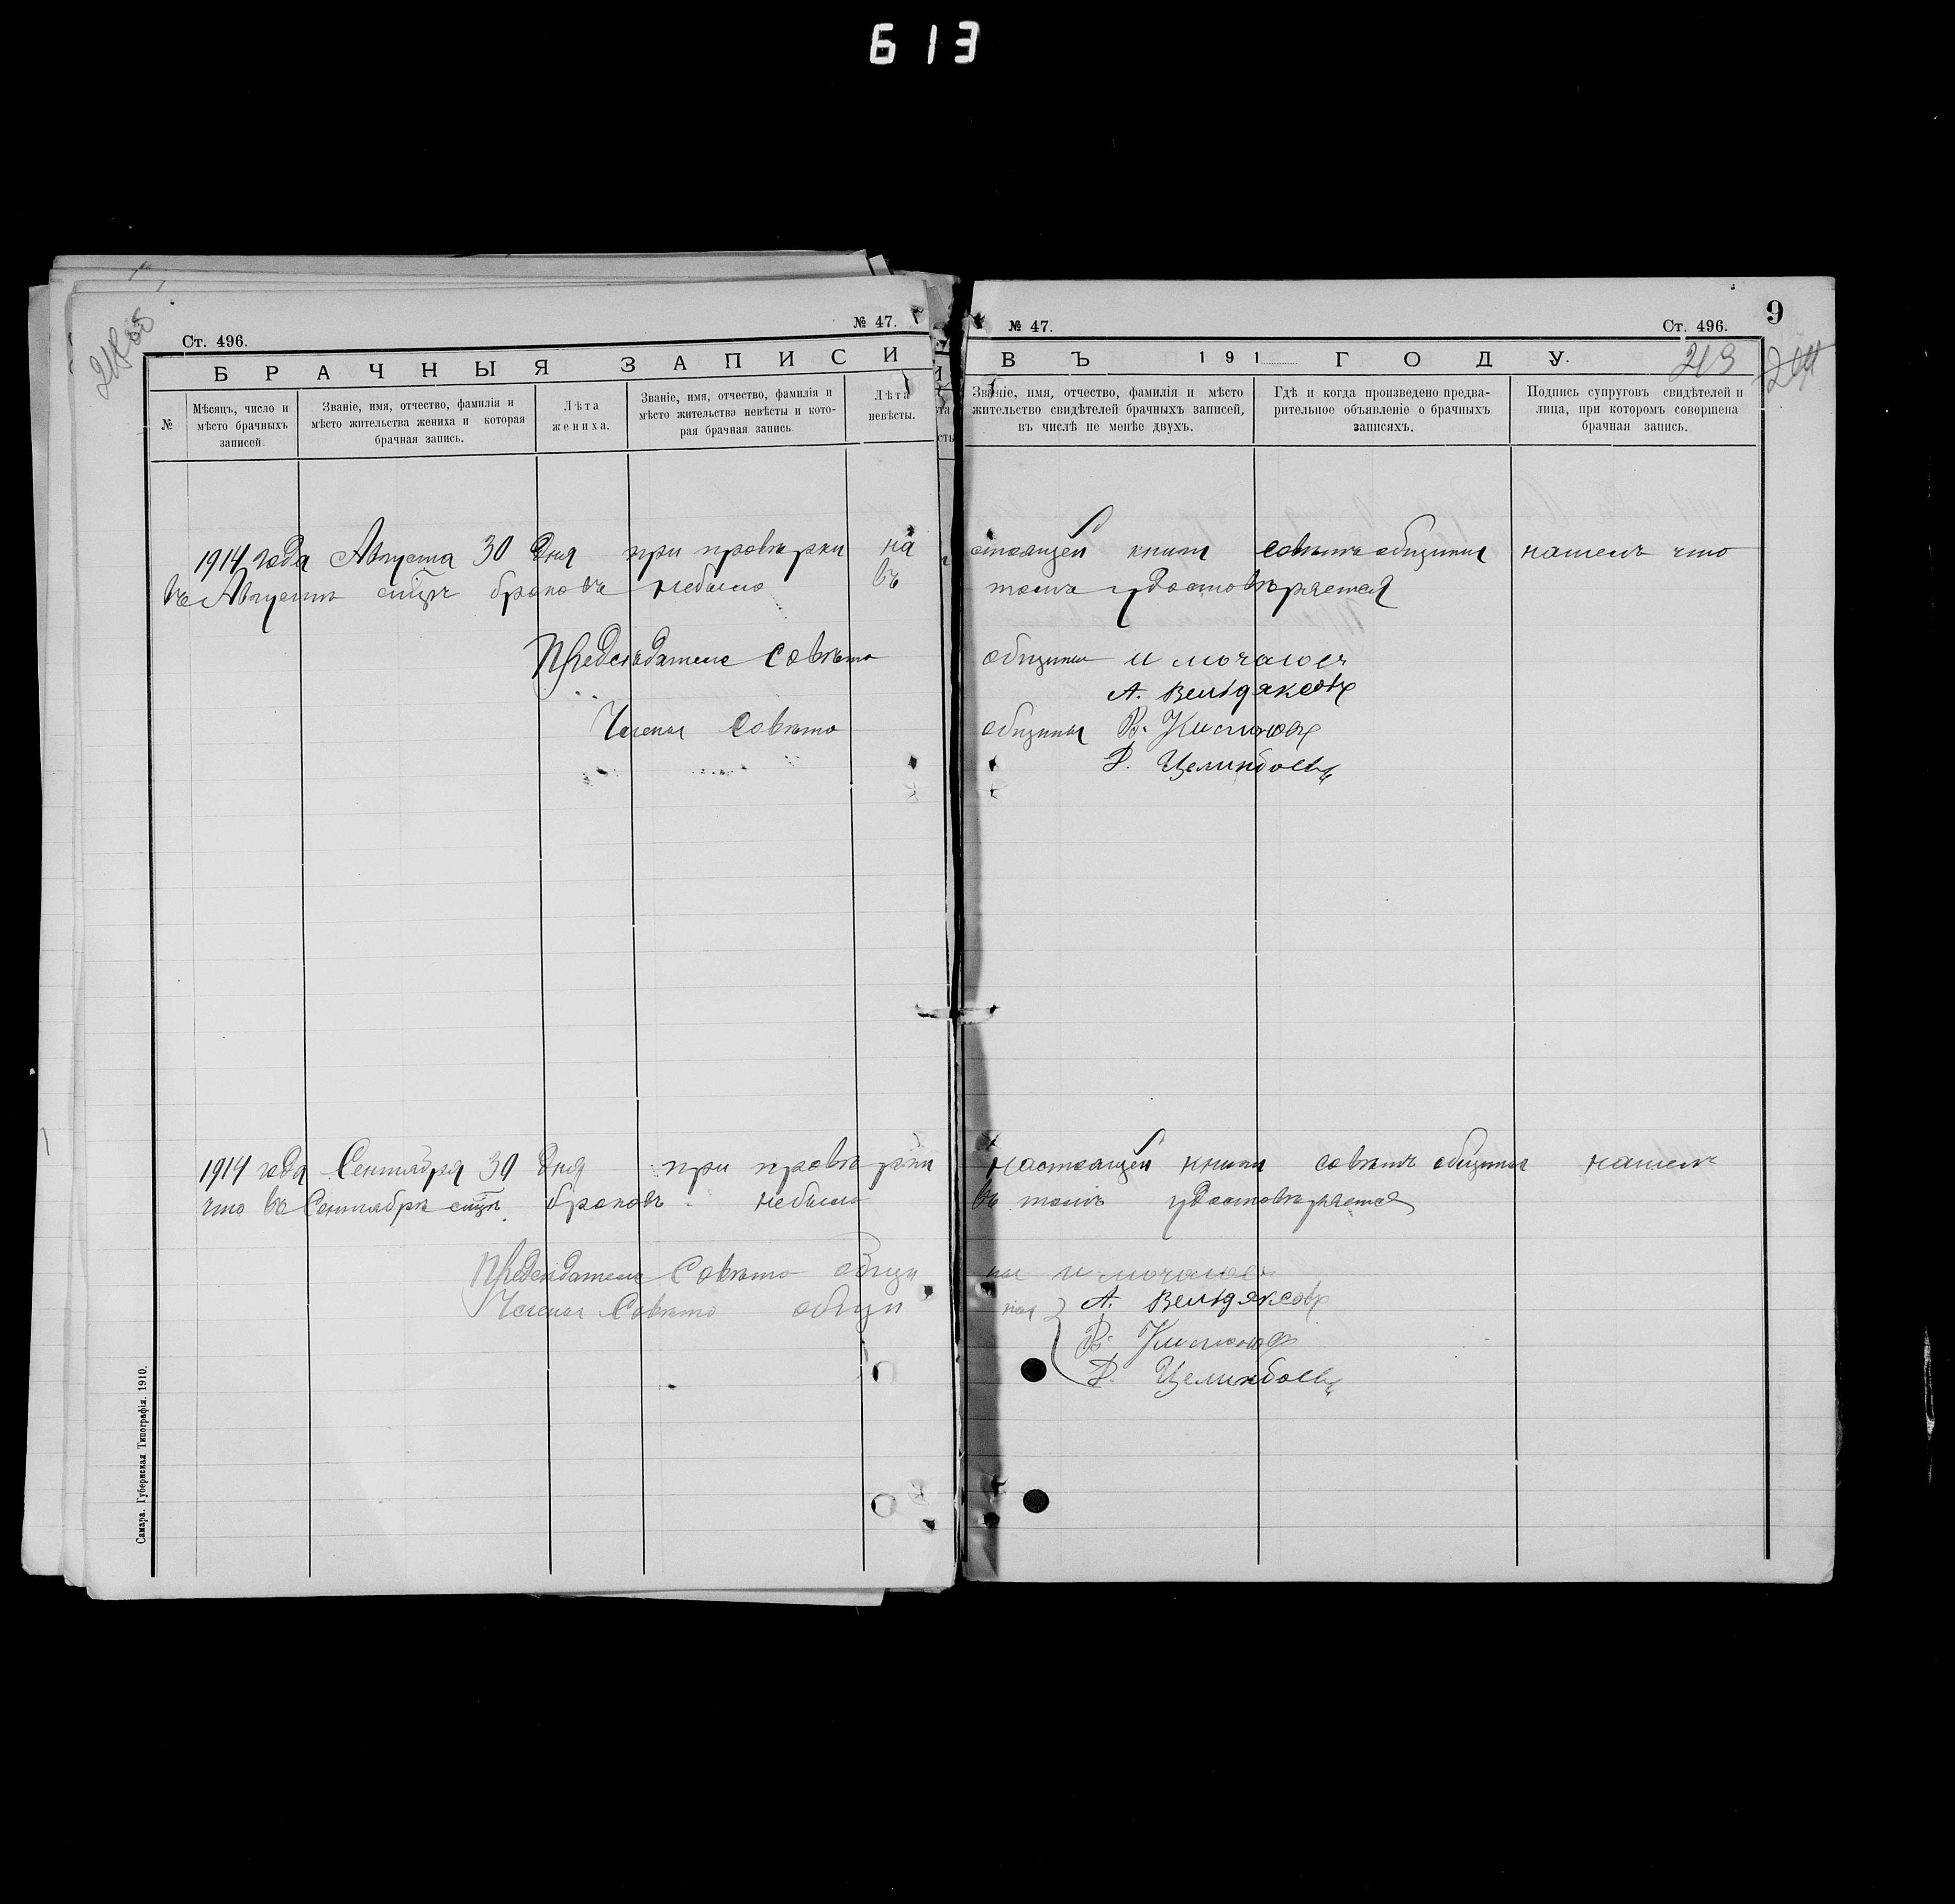 613
Ст. 496. № 47.
БРАЧНЫЯ ЗАПИСИ
№
Мѣсяцъ, число и мѣсто брачныхъ записей.
Званіе, имя, отчество, фамилія и мѣсто жительства жениха и которая брачная запись.
Лѣта жениха.
Званіе, имя, отчество, фамилія и мѣсто жительства невѣсты и которая брачная запись.
Лѣта невѣсты.
№ 47. Ст. 496. 9
ВЪ 191 ГОДУ. 213
Званіе, имя, отчество, фамилія и мѣсто жительство свидѣтелей брачныхъ записей, въ числѣ не менѣе двухъ.
Гдѣ и когда произведено предварительное объявленіе о брачныхъ записяхъ.
Подпись супруговъ свидѣтелей и лица, при которомъ совершена брачная запись.
1914 года Августа 30 дня при провѣрки настоящей книги совѣтъ общины нашелъ что
въ Августѣ браковъ небыло въ томъ удостовѣряется
Предсѣдатель Совѣта общины
Члены Совѣта общины
1914 года Сентября 30 дня при провѣрки настоящей книги совѣтъ общины нашелъ
что въ Сентябрѣ браковъ небыло въ томъ удостовѣряется
Предсѣдатель Совѣта общины
Члены Совѣта общины
Самара. Губернская Типографія. 1910.